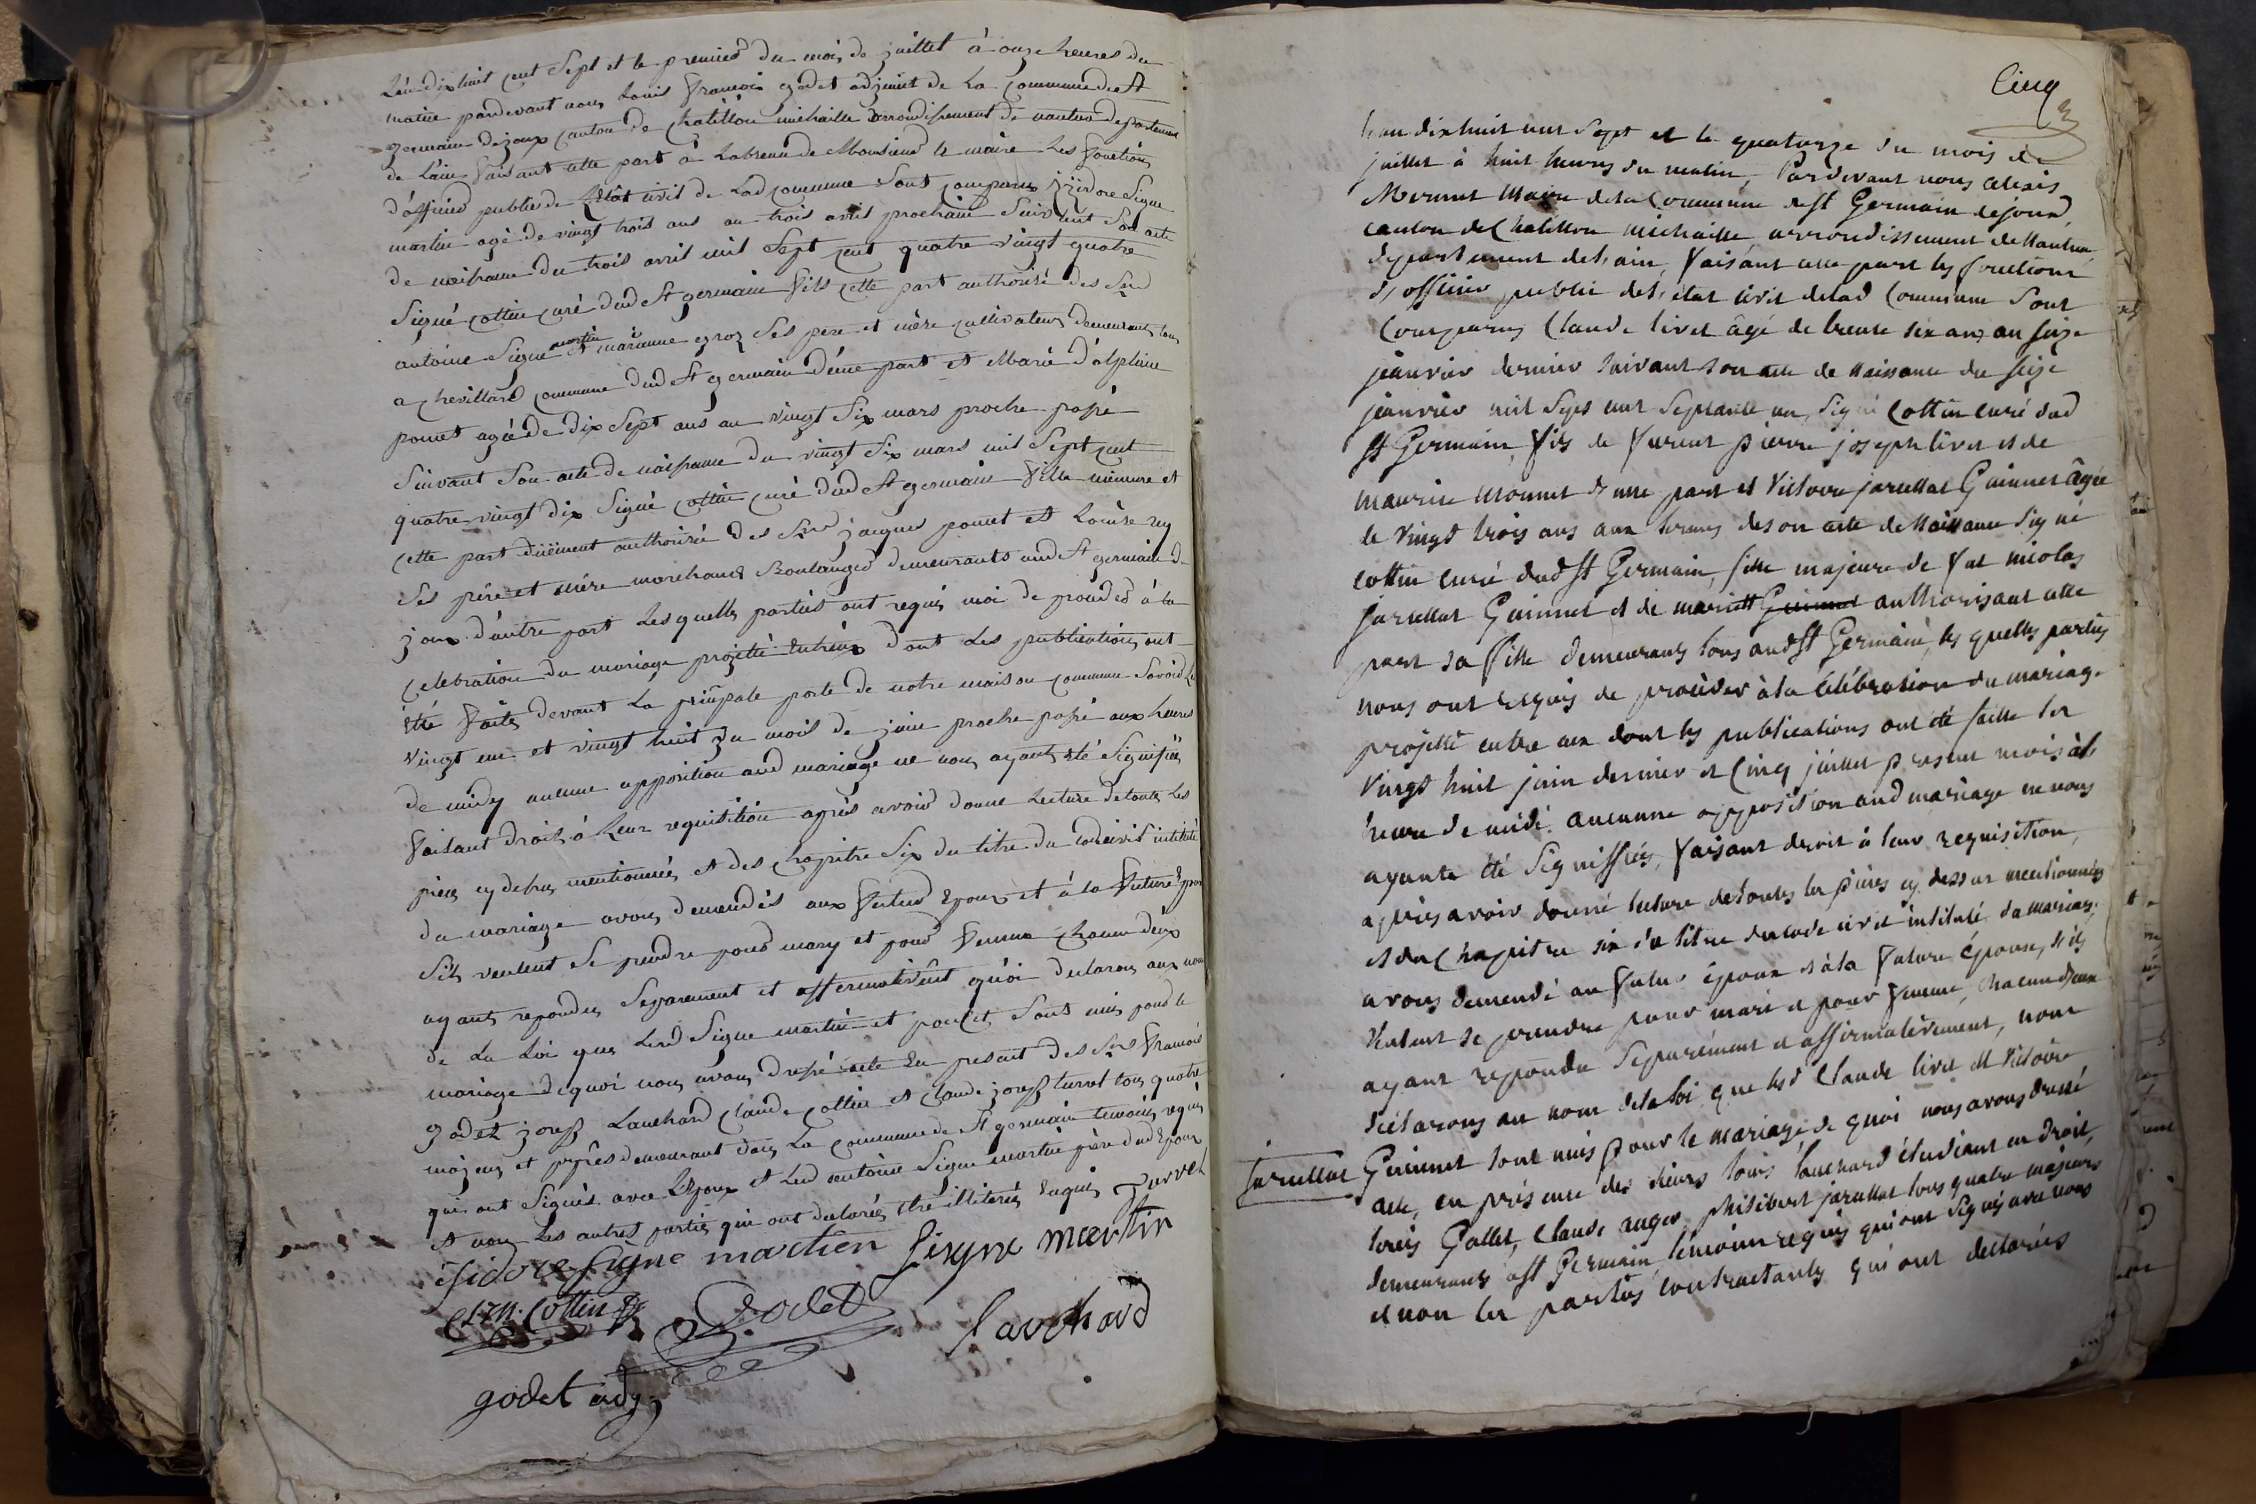 L'an dix huit cent Sept et le premier du mois de juillet à onze heures du
matin pardevant nous Louis François godet adjoint de La Commune de St
germain de joux canton de Chatillon michaille arrondissement de nantua departement
de L'ain faisant cette part à L'absence de Monsieur le maire Les fonctions
d'officier public de L'Etat civil de Lad commune Sont comparus izidore Signe
martin agé de vingt trois ans au trois avril prochain Suivant Son acte
de naissance du trois avril mil Sept cent quatre vingt quatre
Signé Cottin curé dud St germain fils cette part authorisé des Srs
antoine Signe martin et marianne groz Ses pere et mère cultivateurs demeurants tous
a chevillard commune dud St germain d'une part et Marie d'olphine
poncet agée de dix Sept ans au vingt Six mars proche passé
Suivant Son acte de naissance du vingt Six mars mil Sept cent
quatre vingt dix Signé Cottin curé dud St germain fille mineure et
cette part düement authorisée des Srs jacques poncet et Louise rey
Ses père et mère marchand Boulanger demeurants aud St germain de
joux d'autre part Lesquelles parties ont requis moi de proceder à la
celebration du mariage projetté entreux dont Les publications ont
été faites devant La principale porte de notre maison commune Savoir Le
vingt un et vingt huit du mois de juin proche passé aux heures
de midy aucune opposition aud mariage ne nous ayant été Signifiée
faisant droit à Leur requisition après avoir donné Lecture de toutes Les
pieces cy dessus mentionnées et des chapitre Six du titre du code civil intitulé
du mariage avons demandés aux futur Epoux et à la future Epouse
S'ils veulent Se prendre pour mary et pour femme chacun d'eux
ayants repondus Separement et affermativem̂t quôi declarons aux nom
de La Loi que Led Signe martin et poncet Sont unis pour le
mariage de quoi nous avons dressé acte En presant des Srs François
godet josph Lauchard Claude Cottin et Claude josph turrel tous quatre
majeurs et pypres demeurant dans La commune de St germain temoins requis
qui ont Signés avec L'Epoux et Led antoine Signe martin père dud Epoux
et non Les autres parties qui ont declarés être illiterés Enquis Turrel
isidore Signe martien Signe martin
Cottin godet Lauchard
godet adj
Cinq
L'an dix huit cent Sept et le quatorze du mois de
juillet à huit heures du matin, Pardevant nous alexis
Mermet Maire de la Commune de St Germain dejoux
canton de Chatillon michaille arrondissement de Nantua
département de L'ain, faisant cette part les fonctions
d'officier public de L'état civil de lad Commune Sont
Comparus Claude livet âgé de trente six ans au seize
janvier dernier suivant son acte de Naissance du seize
janvier mil Sept cent Septante un, signé Cottin curé dud
St Germain, fils de furent pierre joseph livet et de
maurise Monnet d'une part et Victoire jarcellat Guinnet âgée
de vingt trois ans aux termes de son acte de Naissance Signé
cottin curé dud St Germain, fille majeure de fut nicolas
jarcellat Guinnet et de authorisant cette
part sa fille demeurants tous aud St Germain, les quelles parties
nous ont requis de procéder à la célébration du mariage
projetté entre eux dont les publications ont été faitte les
vingt huit juin dernier et Cinq juillet présent mois à l'
heure de midi. aucunne opposition aud mariage ne nous
ayante été Signiffiée, faisant droit à leur requisition,
après avoir donné lecture de toutes les pièces cy dessus mentionnées
et du Chapitre six du titre du code civil intitulé du mariage,
avons demendé au futur époux et à la future épouse, s'ils
veulent se prendre pour mari et pour femme, Chacun d'eux
ayant repondu Separément et affirmativement, nous
déclarons au nom de la loi que lesd Claude livet et Victoire
jarcellat Guinnet sont unis pour le mariage de quoi nous avons dressé
acte, en présence des sieurs louis lauchard étudiant en droit,
louis Gallet, Claude auger, philibert jarcellat tous quatre majeurs
demeurants a St Germain témoins requis qui ont Signés avec nous
et non les parties contractants qui ont declarés